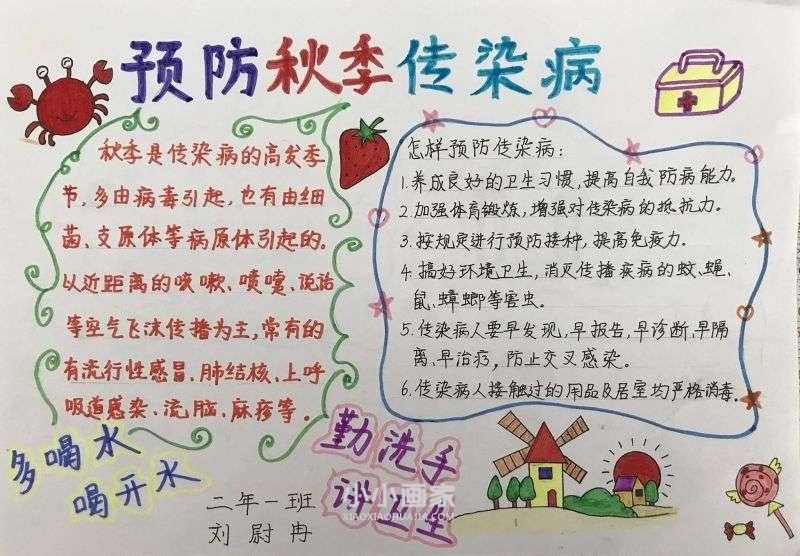 预防秋季传染病
秋季是传染病的高发季
节,多由病毒引起,也有由细
菌、支原体等病原体引起的。
以近距离的咳嗽、喷嚏、说话
等空气飞沫传播为主,常有的
有流行性感冒、肺结核、上呼
吸道感染、流脑、麻疹等。
怎样预防传染病:
1.养成良好的卫生习惯,提高自我防病能力。
2.加强体育锻炼,增强对传染病的抵抗力。
3.按规定进行预防接种,提高免疫力。
4.搞好环境卫生,消灭传播疾病的蚊、蝇、
鼠、蟑螂等害虫。
5.传染病人要早发现,早报告,早诊断,早隔
离、早治疗,防止交叉感染。
6.传染病人接触过的用品及居室均严格消毒。
多喝水
喝开水
勤洗手
讲卫生
二年一班
刘尉冉
小小画家
XIAOXIAOHUAJIA.COM